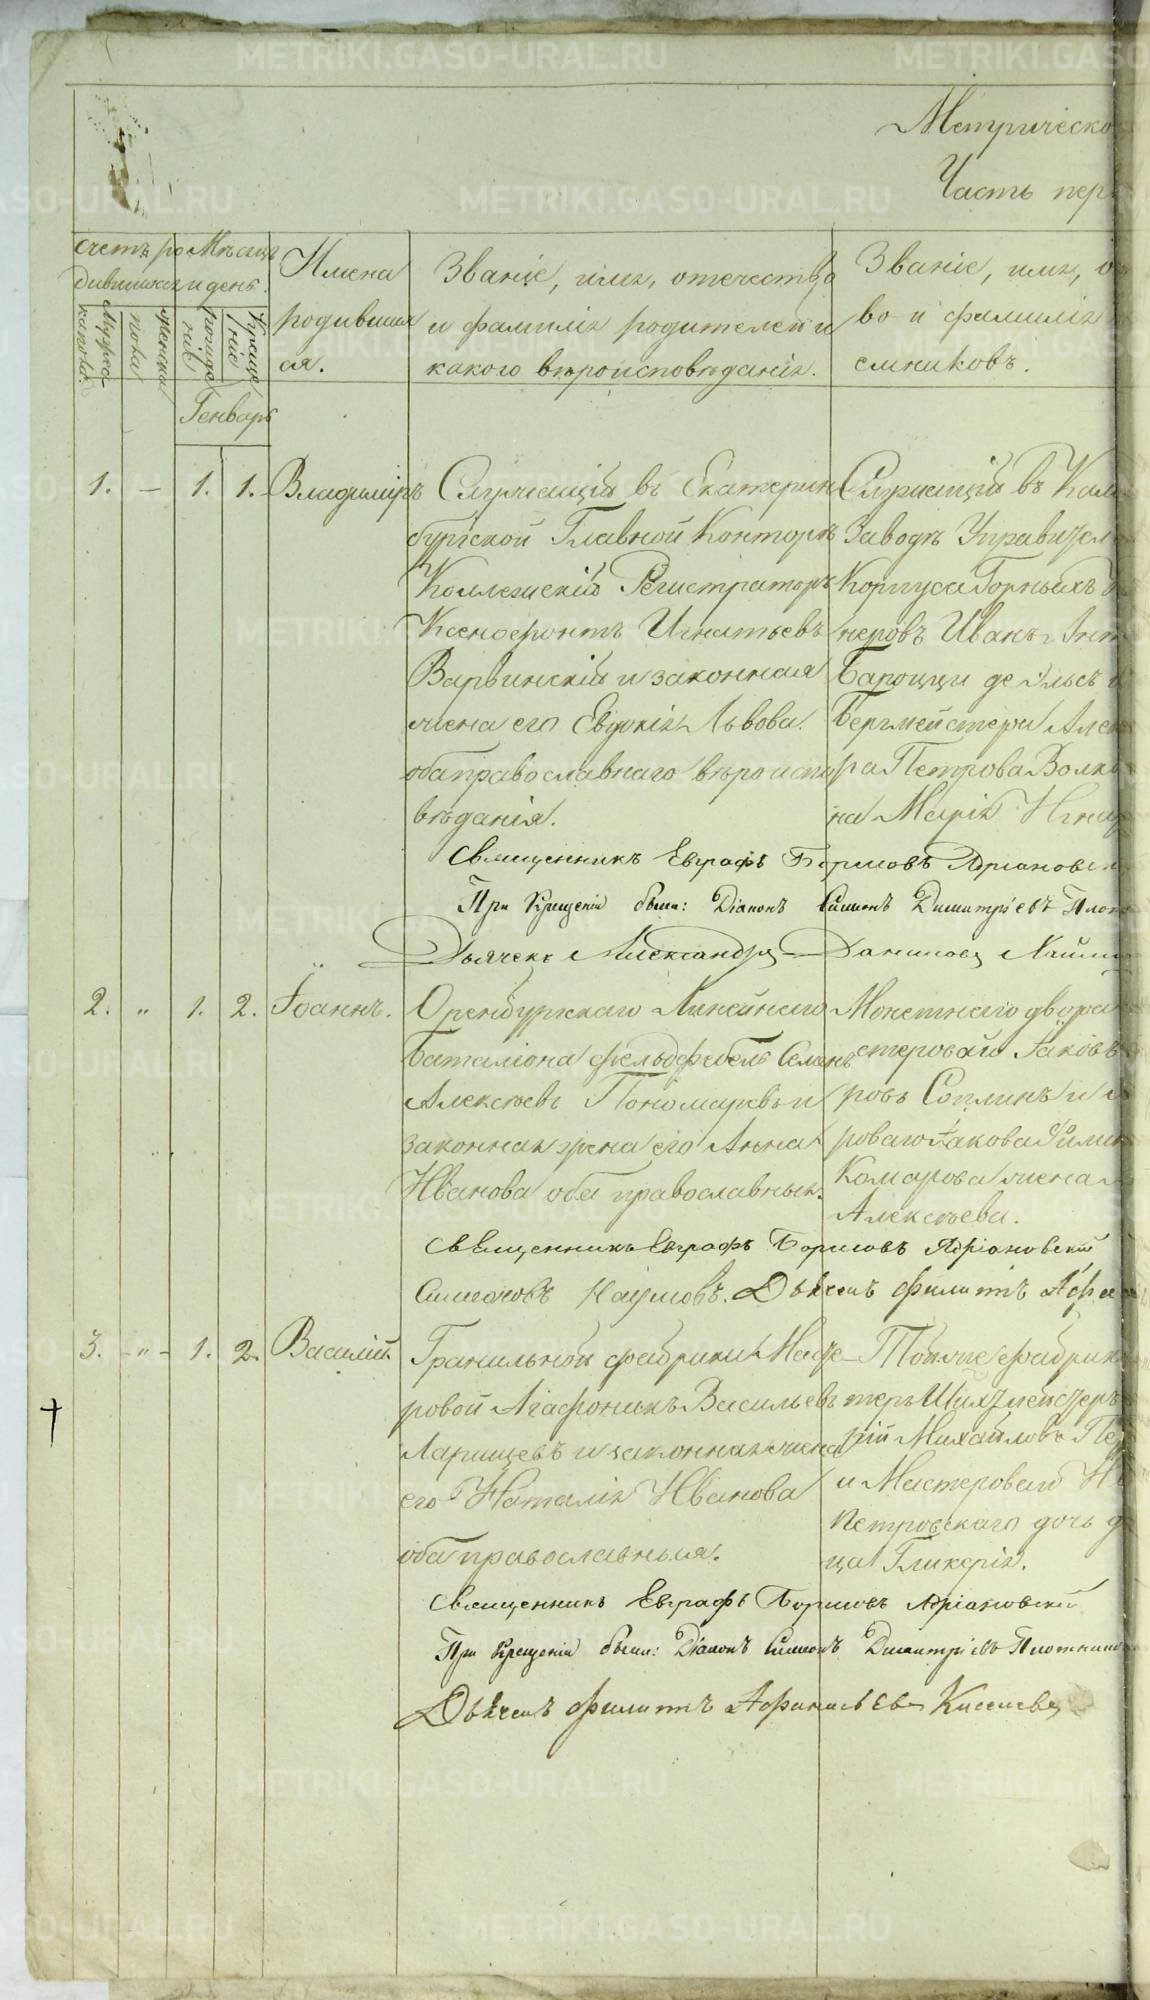 METRIKI.GASO-URAL.RU
Метрическо
Часть пер
счетъ ро
дившихся
Мужеска
пола
женска
Мѣсяцъ
и день.
рожде
нія
Креще
нія
Генварь
Имена
родивших
ся.
Званіе, имя, отечество
и фамилія родителей и
какого вѣроисповѣданія.
Званіе, имя, о
во и фамилія
емниковъ.
1. — 1. 1. Владиміръ
Служащій въ Екатерин
бургской Главной Конторѣ
Коллежскій Регистраторъ
Ксенофонтъ Игнатьевъ
Варвинскій и законная
жена его Евдокія Львова.
оба православнаго вѣроиспо
вѣданія.
Служащій въ Кам
Заводѣ Управител
Корпуса Горныхъ И
неровъ Иванъ
Бароцци де Эльсъ и
Бергмейстера Алек
ра Петрова Волк
на Марія
Священникъ Евграфъ Борисовъ Адріановск
При Крещеніи были: Діаконъ Симеонъ Димитріевъ Плот
Дьячекъ Александръ Даниловъ
2. „ 1. 2. Іоаннъ.
Оренбургскаго Линейнаго
Баталіона фельдфебель Семенъ
Алексѣевъ Пономаревъ и
законная жена его Анна
Иванова оба православныя.
Монетнаго двора
стеровой Іаковъ
ровъ Соплинъ и
роваго Іакова
Комарова жена
Алексѣева.
Священникъ Евграфъ Борисовъ Адріановскій
Симеоновъ Наумовъ. Дьячекъ Филиппъ Афа
3. – „ – 1. 2. Василій
Гранильной фабрики Масте
ровой Агафоникъ Васильевъ
Ларищевъ и законная жена
его Наталія Иванова
оба православныя.
Тояже фабрик
теръ Шихтмейстеръ
рій Михайловъ Пе
и Мастероваго
Петровскаго дочь д
ца Гликерія.
Священникъ Евграфъ Борисовъ Адріановскій
При Крещеніи были: Діаконъ Симеонъ Димитріевъ Плотник
Дьячекъ Филиппъ Афанасьевъ Киселевъ